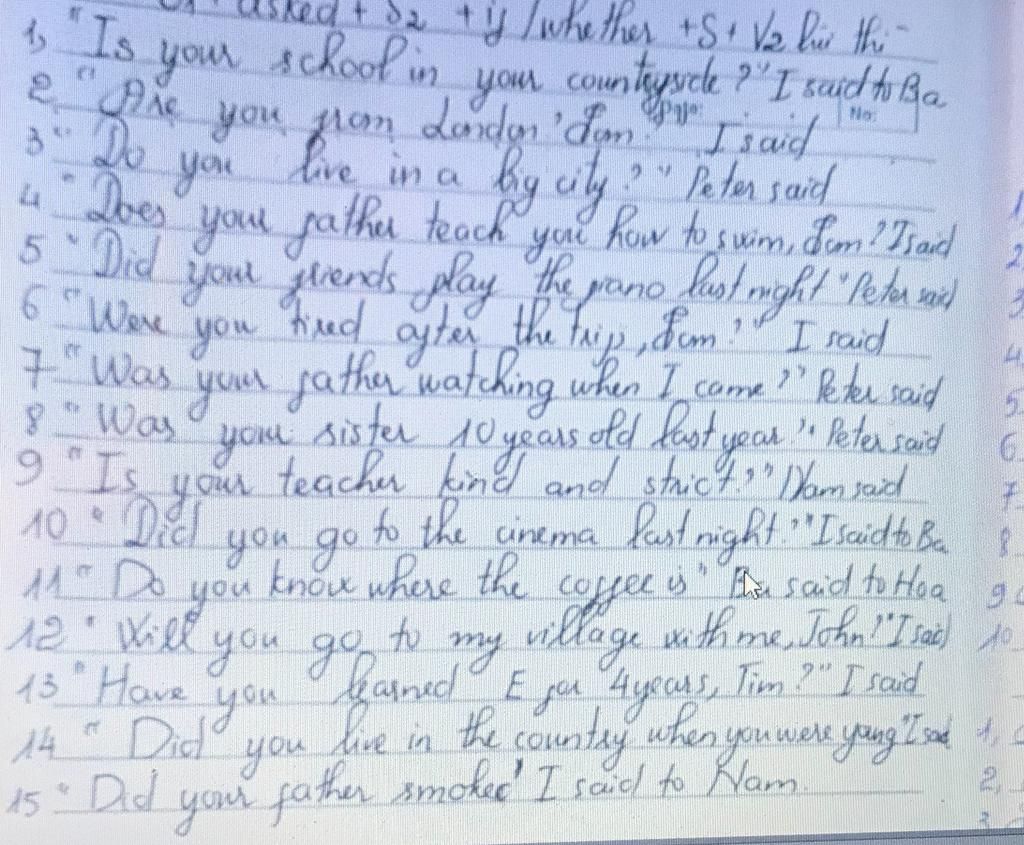 asked + S2 + if / whether + S + V2 lùi thì
1, "Is your school in your countryside?" I said to Ba
No:
2 "Are you from London, Tom?" I said
3 "Do you live in a big city?" Peter said
4 "Does your father teach you how to swim, Tom? I said
5 "Did your friends play the piano last night" Peter said
6 "Were you tired after the trip, Tom?" I said
7 "Was your father watching when I came?" Peter said
8 "Was your sister 10 years old last year" Peter said
9 "Is your teacher kind and strict?" Nam said
10 "Did you go to the cinema last night?" I said to Ba
11 "Do you know where the coffee is" said to Hoa
12 "Will you go to my village with me, John?" I said
13 "Have you learned E for 4 years, Tim?" I said
14 "Did you live in the country when you were young" I said
15 "Did your father smoked" I said to Nam.